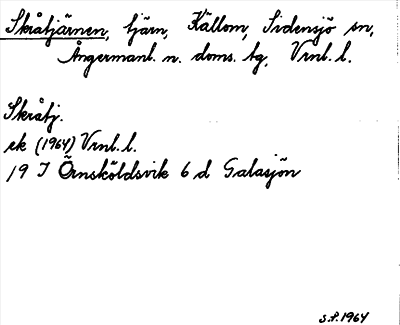 Skråtjärnen, tjärn, Källom, Sidensjö sn,
Ångermanl. n. doms. tg, Vrnl. l.
Skråtj.
ek (1964) Vrnl. l.
19 I Örnsköldsvik 6 d Galasjön
s.f. 1964